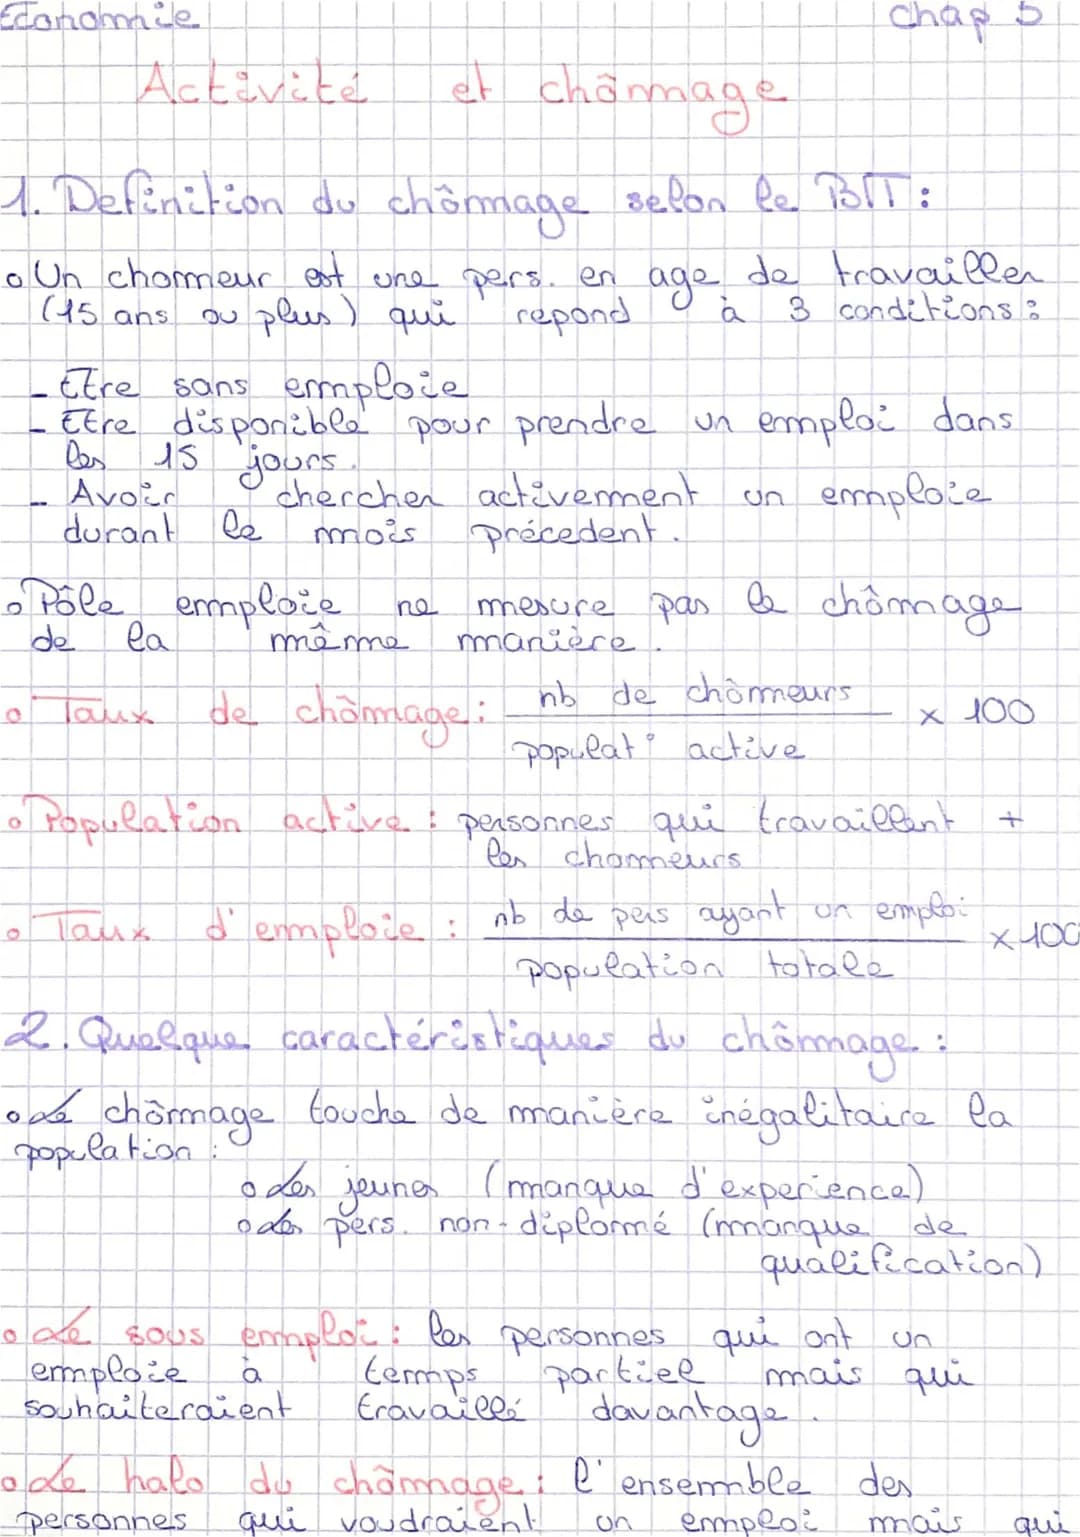 Economie chap 5
Activité et chômage
1. Definition du chômage selon le BIT :
o Un chomeur est une pers. en age de travailler
(15 ans ou plus) qui repond à 3 conditions :
- Etre sans emploie
- Etre disponible pour prendre un emploi dans
les 15 jours.
- Avoir chercher activement un emploie
durant le mois précedent.
o Pôle emploie ne mesure pas le chômage
de la même manière.
o Taux de chômage : nb de chômeurs
x 100
populat° active
o Population active : personnes qui travaillent +
les chomeurs
o Taux d'emploie : nb de pers ayant un emploi
x 100
population totale
2. Quelque caractéristiques du chômage :
o Le chômage touche de manière inégalitaire la
population :
o Les jeunes (manque d'experience)
o Les pers. non-diplormé (manque de
qualification)
o Le sous emploi : les personnes qui ont un
emploie à temps partiel mais qui
souhaiteraient travaillé davantage.
o Le halo du chômage : l'ensemble des
personnes qui voudraient un emploi mais qui